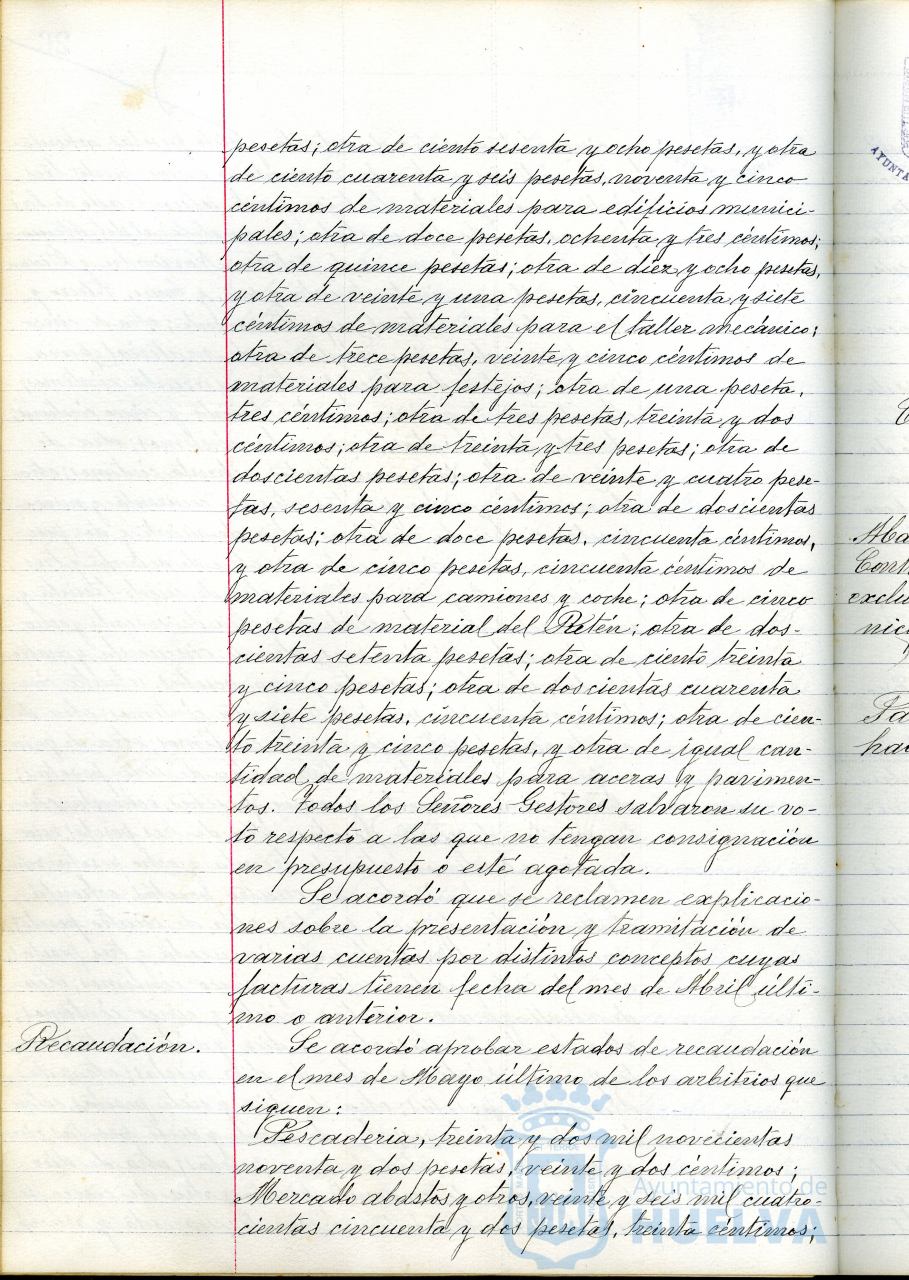 pesetas; otra de ciento sesenta y ocho pesetas, y otra
de ciento cuarenta y seis pesetas, noventa y cinco
céntimos de materiales para edificios munici-
pales; otra de doce pesetas, ochenta y tres céntimos;
otra de quince pesetas; otra de diez y ocho pesetas,
y otra de veinte y una pesetas, cincuenta y siete
céntimos de materiales para el taller mecánico;
otra de trece pesetas, veinte y cinco céntimos de
materiales para festejos; otra de una peseta,
tres céntimos; otra de tres pesetas, treinta y dos
céntimos; otra de treinta y tres pesetas; otra de
doscientas pesetas; otra de veinte y cuatro pese-
tas, sesenta y cinco céntimos; otra de doscientas
pesetas; otra de doce pesetas, cincuenta céntimos,
y otra de cinco pesetas, cincuenta céntimos de
materiales para camiones y coche; otra de cinco
pesetas de material del Retén; otra de dos-
cientas setenta pesetas; otra de ciento treinta
y cinco pesetas; otra de doscientas cuarenta
y siete pesetas, cincuenta céntimos; otra de cien-
to treinta y cinco pesetas, y otra de igual can-
tidad de materiales para aceras y pavimen-
tos. Todos los Señores Gestores salvaron su vo-
to respecto a las que no tengan consignación
en presupuesto o esté agotada.
Se acordó que se reclamen explicacio-
nes sobre la presentación y tramitación de
varias cuentas por distintos conceptos cuyas
facturas tienen fecha del mes de Abril últi-
mo o anterior.
Recaudación.
Se acordó aprobar estados de recaudación
en el mes de Mayo último de los arbitrios que
siguen:
Pescaderia, treinta y dos mil novecientas
noventa y dos pesetas, veinte y dos céntimos;
Mercado abastos y otros, veinte y seis mil cuatro-
cientas cincuenta y dos pesetas, treinta céntimos;
Ayuntamiento de
HUELVA
AYUNTA
exclu